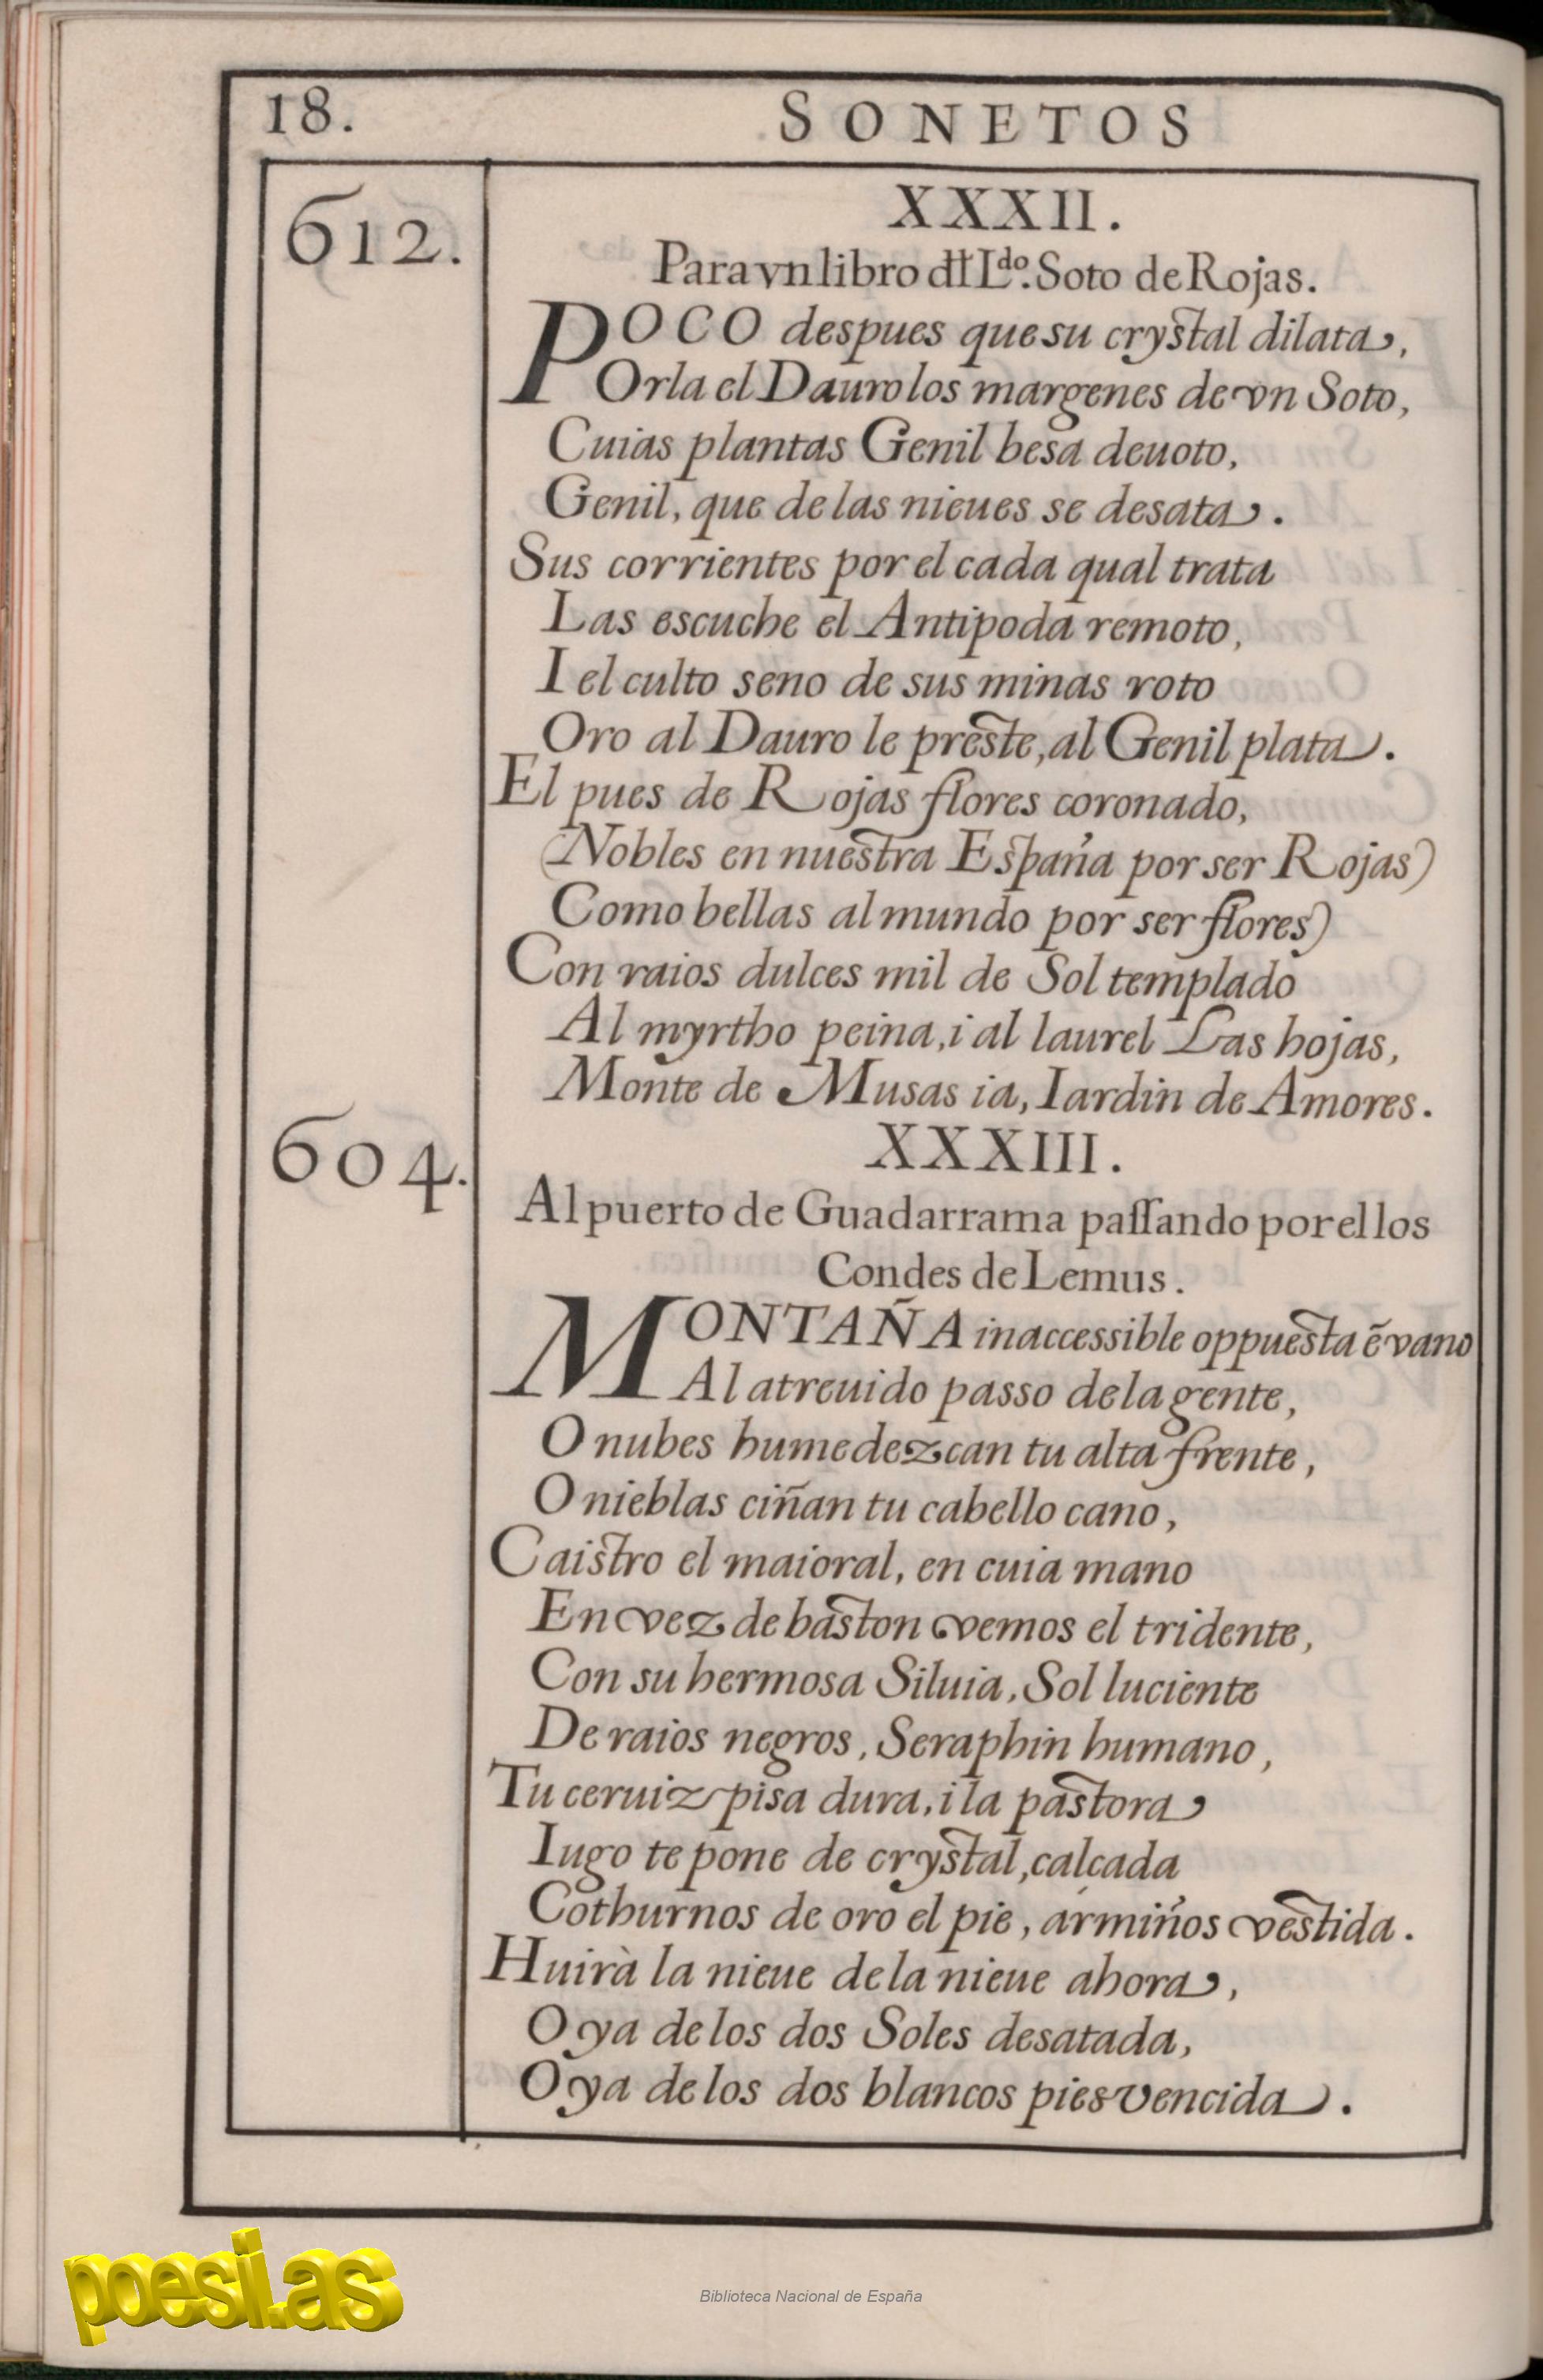 18.
SONETOS
612.
XXXII.
Para vn libro dl Ldo. Soto de Rojas.
POCO despues que su crystal dilata,
Orla el Dauro los margenes de vn Soto,
Cuias plantas Genil besa deuoto,
Genil, que de las nieues se desata.
Sus corrientes por el cada qual trata
Las escuche el Antipoda remoto,
I el culto seno de sus minas roto
Oro al Dauro le preste, al Genil plata.
El pues de Rojas flores coronado,
(Nobles en nuestra España por ser Rojas)
Como bellas al mundo por ser flores)
Con raios dulces mil de Sol templado
Al myrtho peina, i al laurel Las hojas,
Monte de Musas ia, Iardin de Amores.
604.
XXXIII.
Al puerto de Guadarrama paſſando por el los
Condes de Lemus.
MONTAÑA inaccessible oppuesta ẽ vano
Al atreuido passo de la gente,
O nubes humedezcan tu alta frente,
O nieblas ciñan tu cabello cano,
Caistro el maioral, en cuia mano
En vez de baston vemos el tridente,
Con su hermosa Siluia, Sol luciente
De raios negros, Seraphin humano,
Tu ceruiz pisa dura, i la pastora
Iugo te pone de crystal, calçada
Cothurnos de oro el pie, armiños vestida.
Huirà la nieue de la nieue ahora,
O ya de los dos Soles desatada,
O ya de los dos blancos pies vencida.
poesi.as
Biblioteca Nacional de España